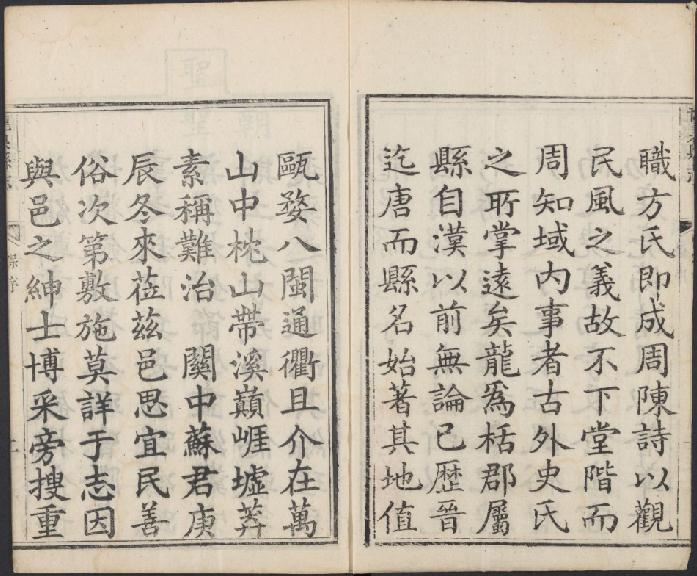 職方氏即成周陳詩以觀
民風之義故不下堂階而
周知域内事者古外史氏
之所掌遠矣龍爲栝郡屬
縣自漢以前無論已歴晉
迄唐而縣名始著其地值
甌婺八閩通衢且介在萬
山中枕山帶溪巔崕墟莽
素稱難治 關中蘇君庚
辰冬來莅茲邑思宜民善
俗次第敷施莫詳于志因
與邑之紳士博采旁搜重